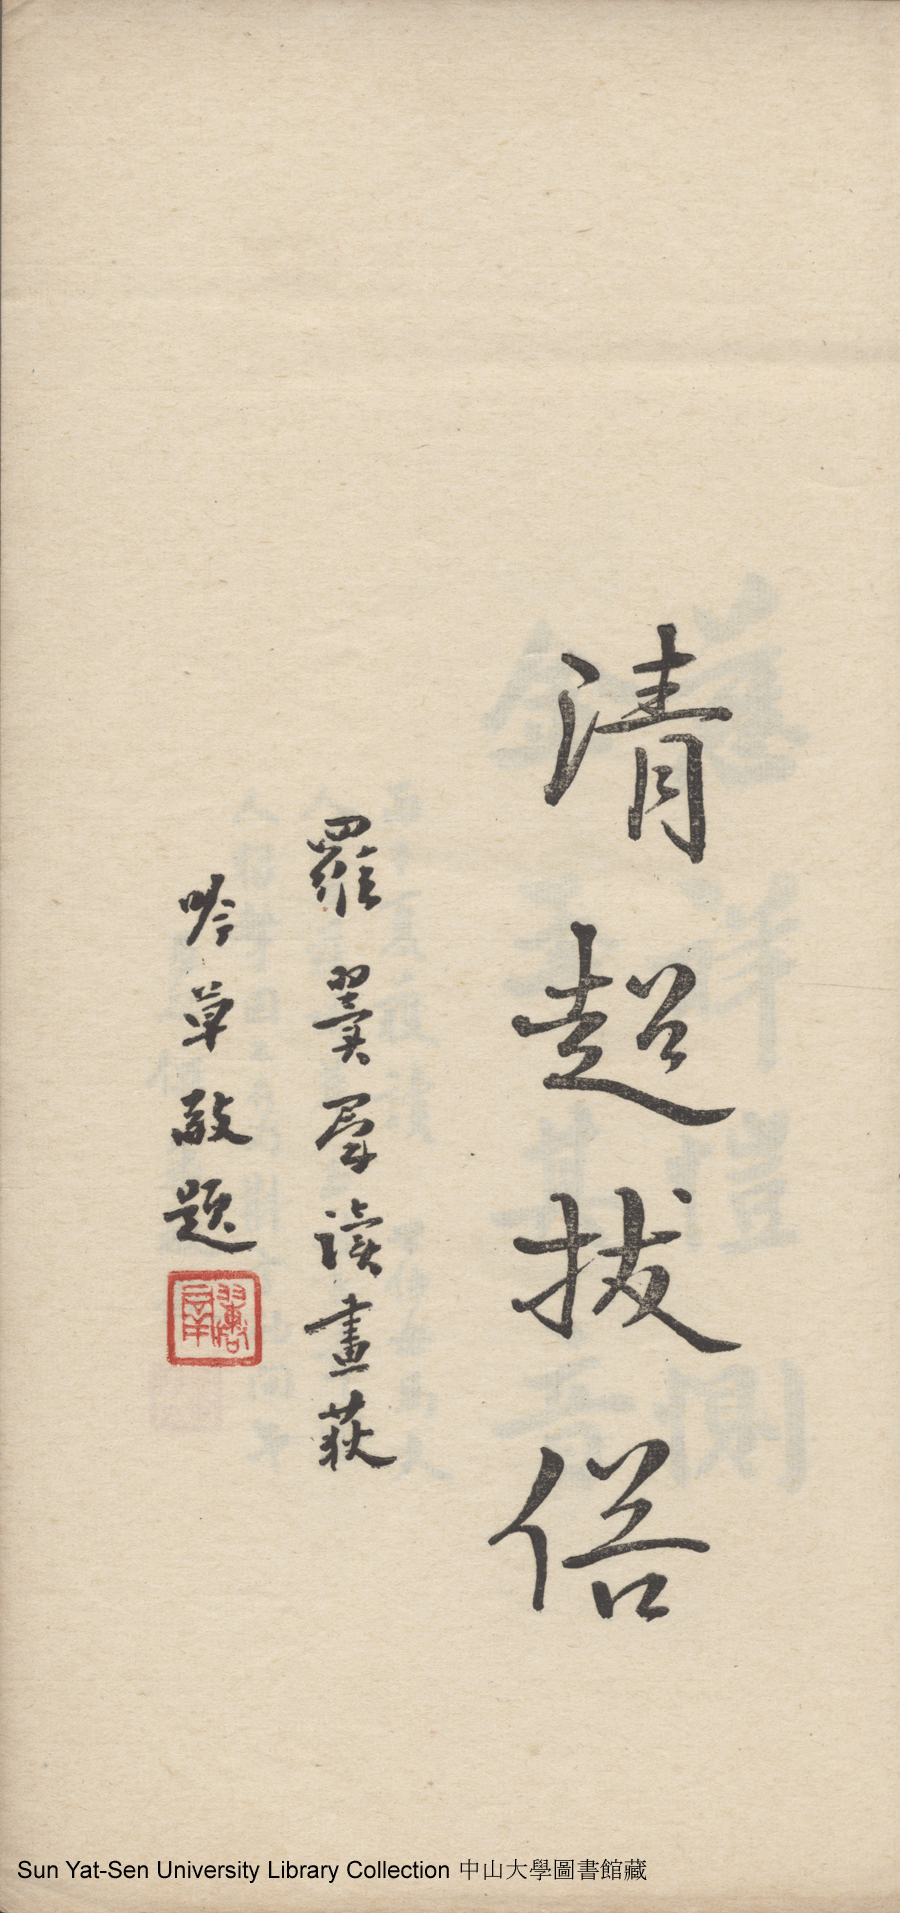 清超拔俗
羅翼群讀畫荻
吟草敬題
Sun Yat-Sen University Library Collection 中山大學圖書館藏